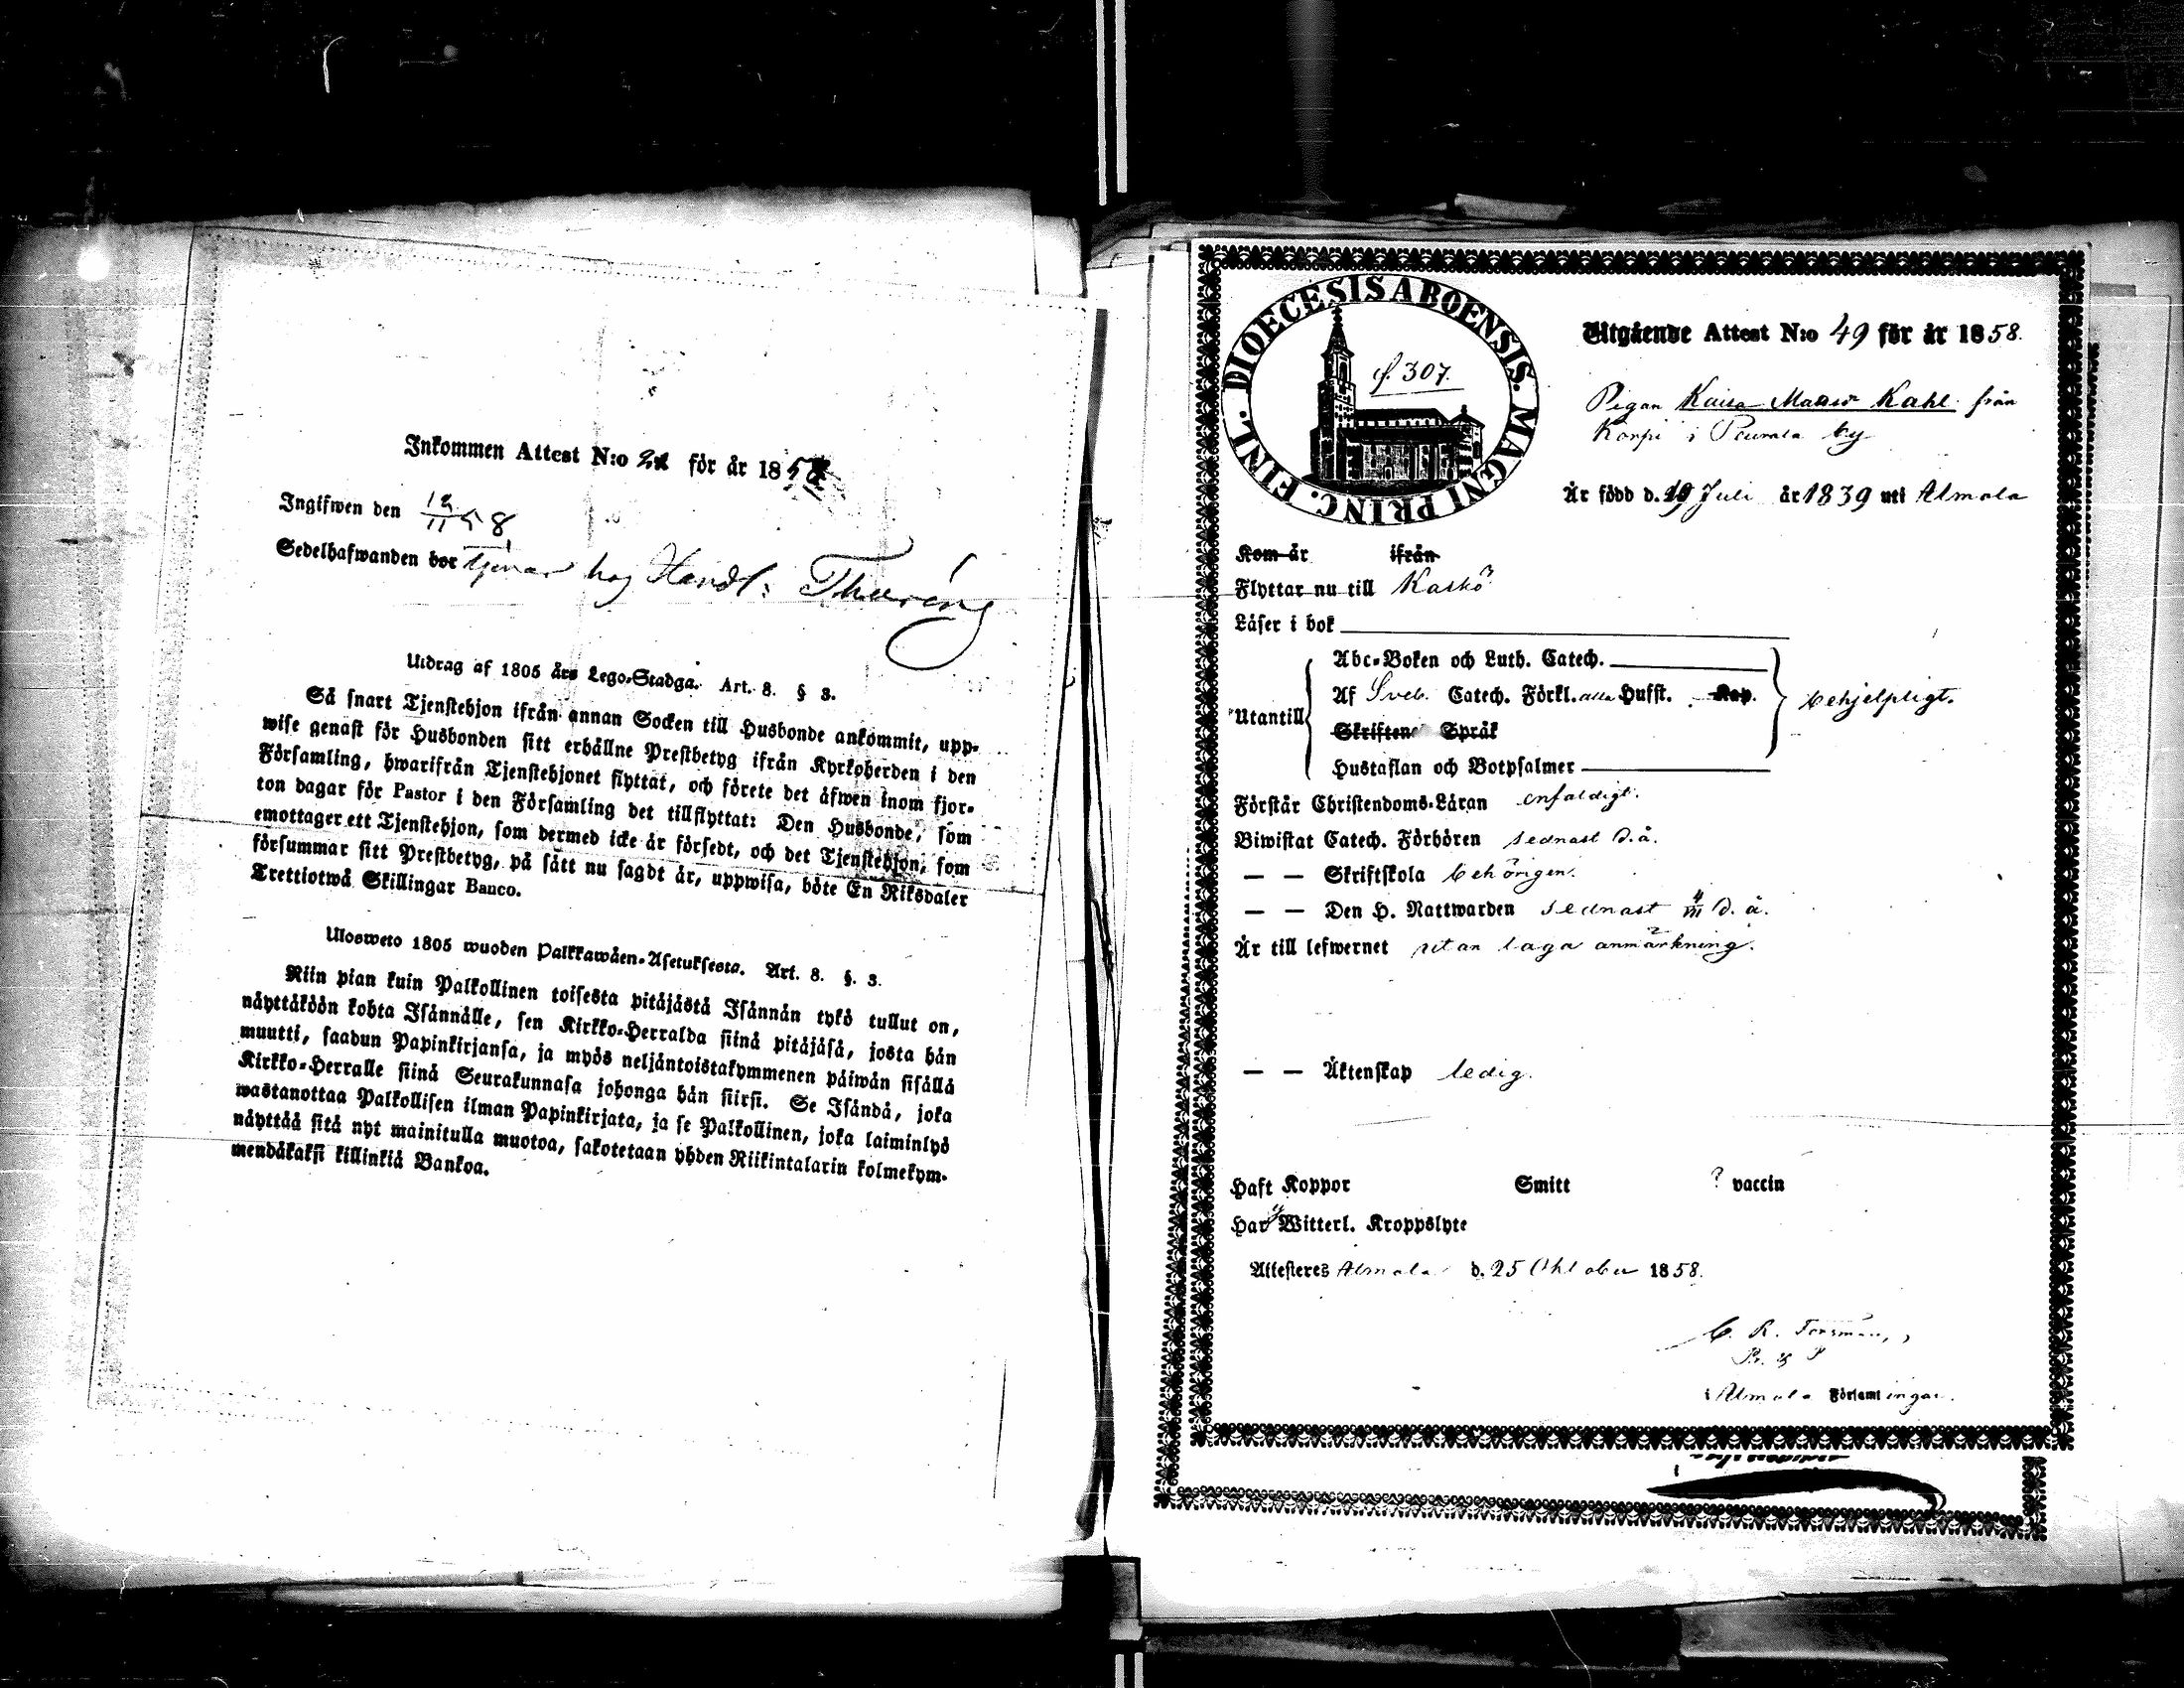 Inkommen Attest N:o för år 1858
Ingifwen den 12/11 58
Sedelhafwanden bor tjenar hos Handl: Thuréng
Utdrag af 1805 års Lego-Stadga. Art. 8. § 3.
Så snart Tjenstehjon ifrån annan Socken till Husbonde ankommit, upp-
wise genast för Husbonden sitt erhållne Prestbetyg ifrån Kyrkoherden i den
Församling, hwarifrån Tjenstehjonet flyttat, och förete det äfwen inom fjor-
ton dagar för Pastor i den Församling det tillflyttat: Den Husbonde, som
emottager ett Tjenstehjon, som dermed icke är försedt, och det Tjenstehjon, som
försummar sitt Prestbetyg, på sätt nu sagdt är, uppwisa, böte En Riksdaler
Trettiotwå Skillingar Banco.
Ulosweto 1805 wuoden Palkkawäen-Asetuksesta. Art. 8. §. 3.
Niin pian kuin Palkollinen toisesta pitäjästä Isännän tykö tullut on,
näyttäköön kohta Isännälle, sen Kirkko-Herralda siinä pitäjäsä, josta hän
muutti, saadun Papinkirjansa, ja myös neljäntoistakymmenen päiwän sisällä
Kirkko-Herralle siinä Seurakunnasa johonga hän siirsi. Se Isändä, joka
wastanottaa Palkollisen ilman Papinkirjata, ja se Palkollinen, joka laiminlyö
näyttää sitä nyt mainitulla muotoa, sakotetaan yhden Riikintalarin kolmekym-
mendäkaksi killinkiä Bankoa.
DIOECESIS ABOENSIS. MAGNI PRINC. FINL.
f. 307.
Utgående Attest N:o 49 för år 1858.
Pigan Kaisa Kahl från
Korpi i Peurala by
Är född d. 19 Juli år 1839 uti Ilmola
Kom år ifrån
Flyttar nu till Kaskö
Läser i bok
Abc-Boken och Luth. Catech.
Utantill Af Sveb. Catech. Förkl. alla Hufst. Kap. behjelpligt.
Skriftens Språk
Hustaflan och Botpsalmer
Förstår Christendoms-Läran enfaldigt.
Biwistat Catech. Förhören sednast d.å.
— — Skriftskola behörigen.
— — Den H. Nattwarden sednast d. å.
Är till lefwernet utan laga anmärkning.
— — Äktenskap ledig.
Haft Koppor Smitt ? vaccin
Har ej Witterl. Kroppslyte
Attesteres Ilmola d. 25 Oktober 1858.
C. R. Forsman,
i Ilmola Församlingar.